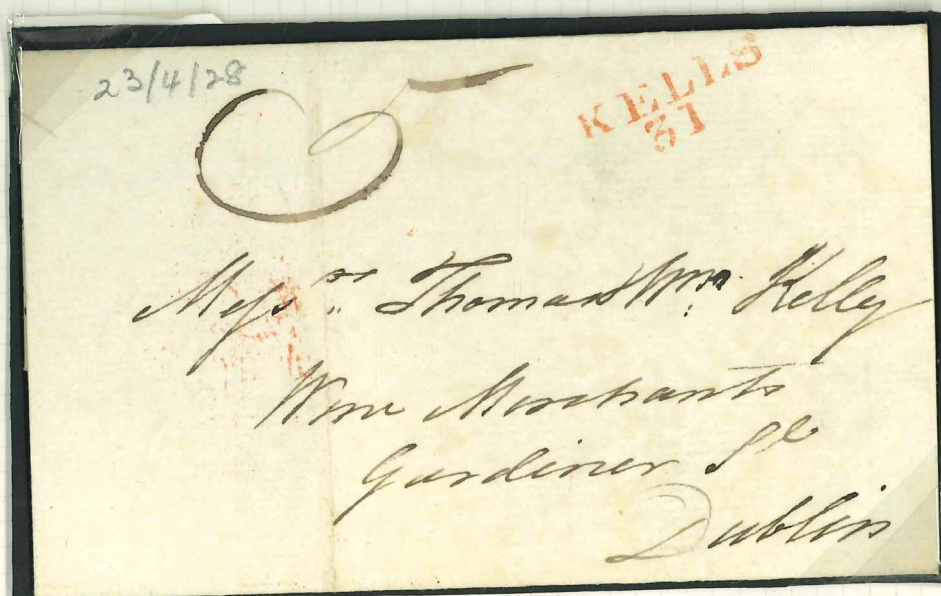 23/4/28
6
KELLS
31
Messrs. Thomas & Wm. Kelly
Wine Merchants
Gardiner St
Dublin